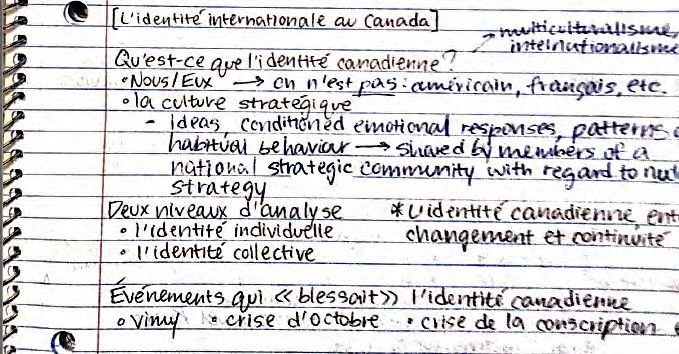 [L'identité internationale au Canada]
multiculturalisme,
internationalisme
Qu'est-ce que l'identité canadienne?
• Nous/Eux → on n'est pas: américain, français, etc.
• la culture stratégique
- Ideas, conditioned emotional responses, patterns
habitual behaviour → shared by members of a
national strategic community with regard to
strategy
Deux niveaux d'analyse
• l'identité individuelle
• l'identité collective
* L'identité canadienne,
changement et continuité
Événements qui << blessait >> l'identité canadienne
• Vimy • crise d'Octobre • crise de la conscription